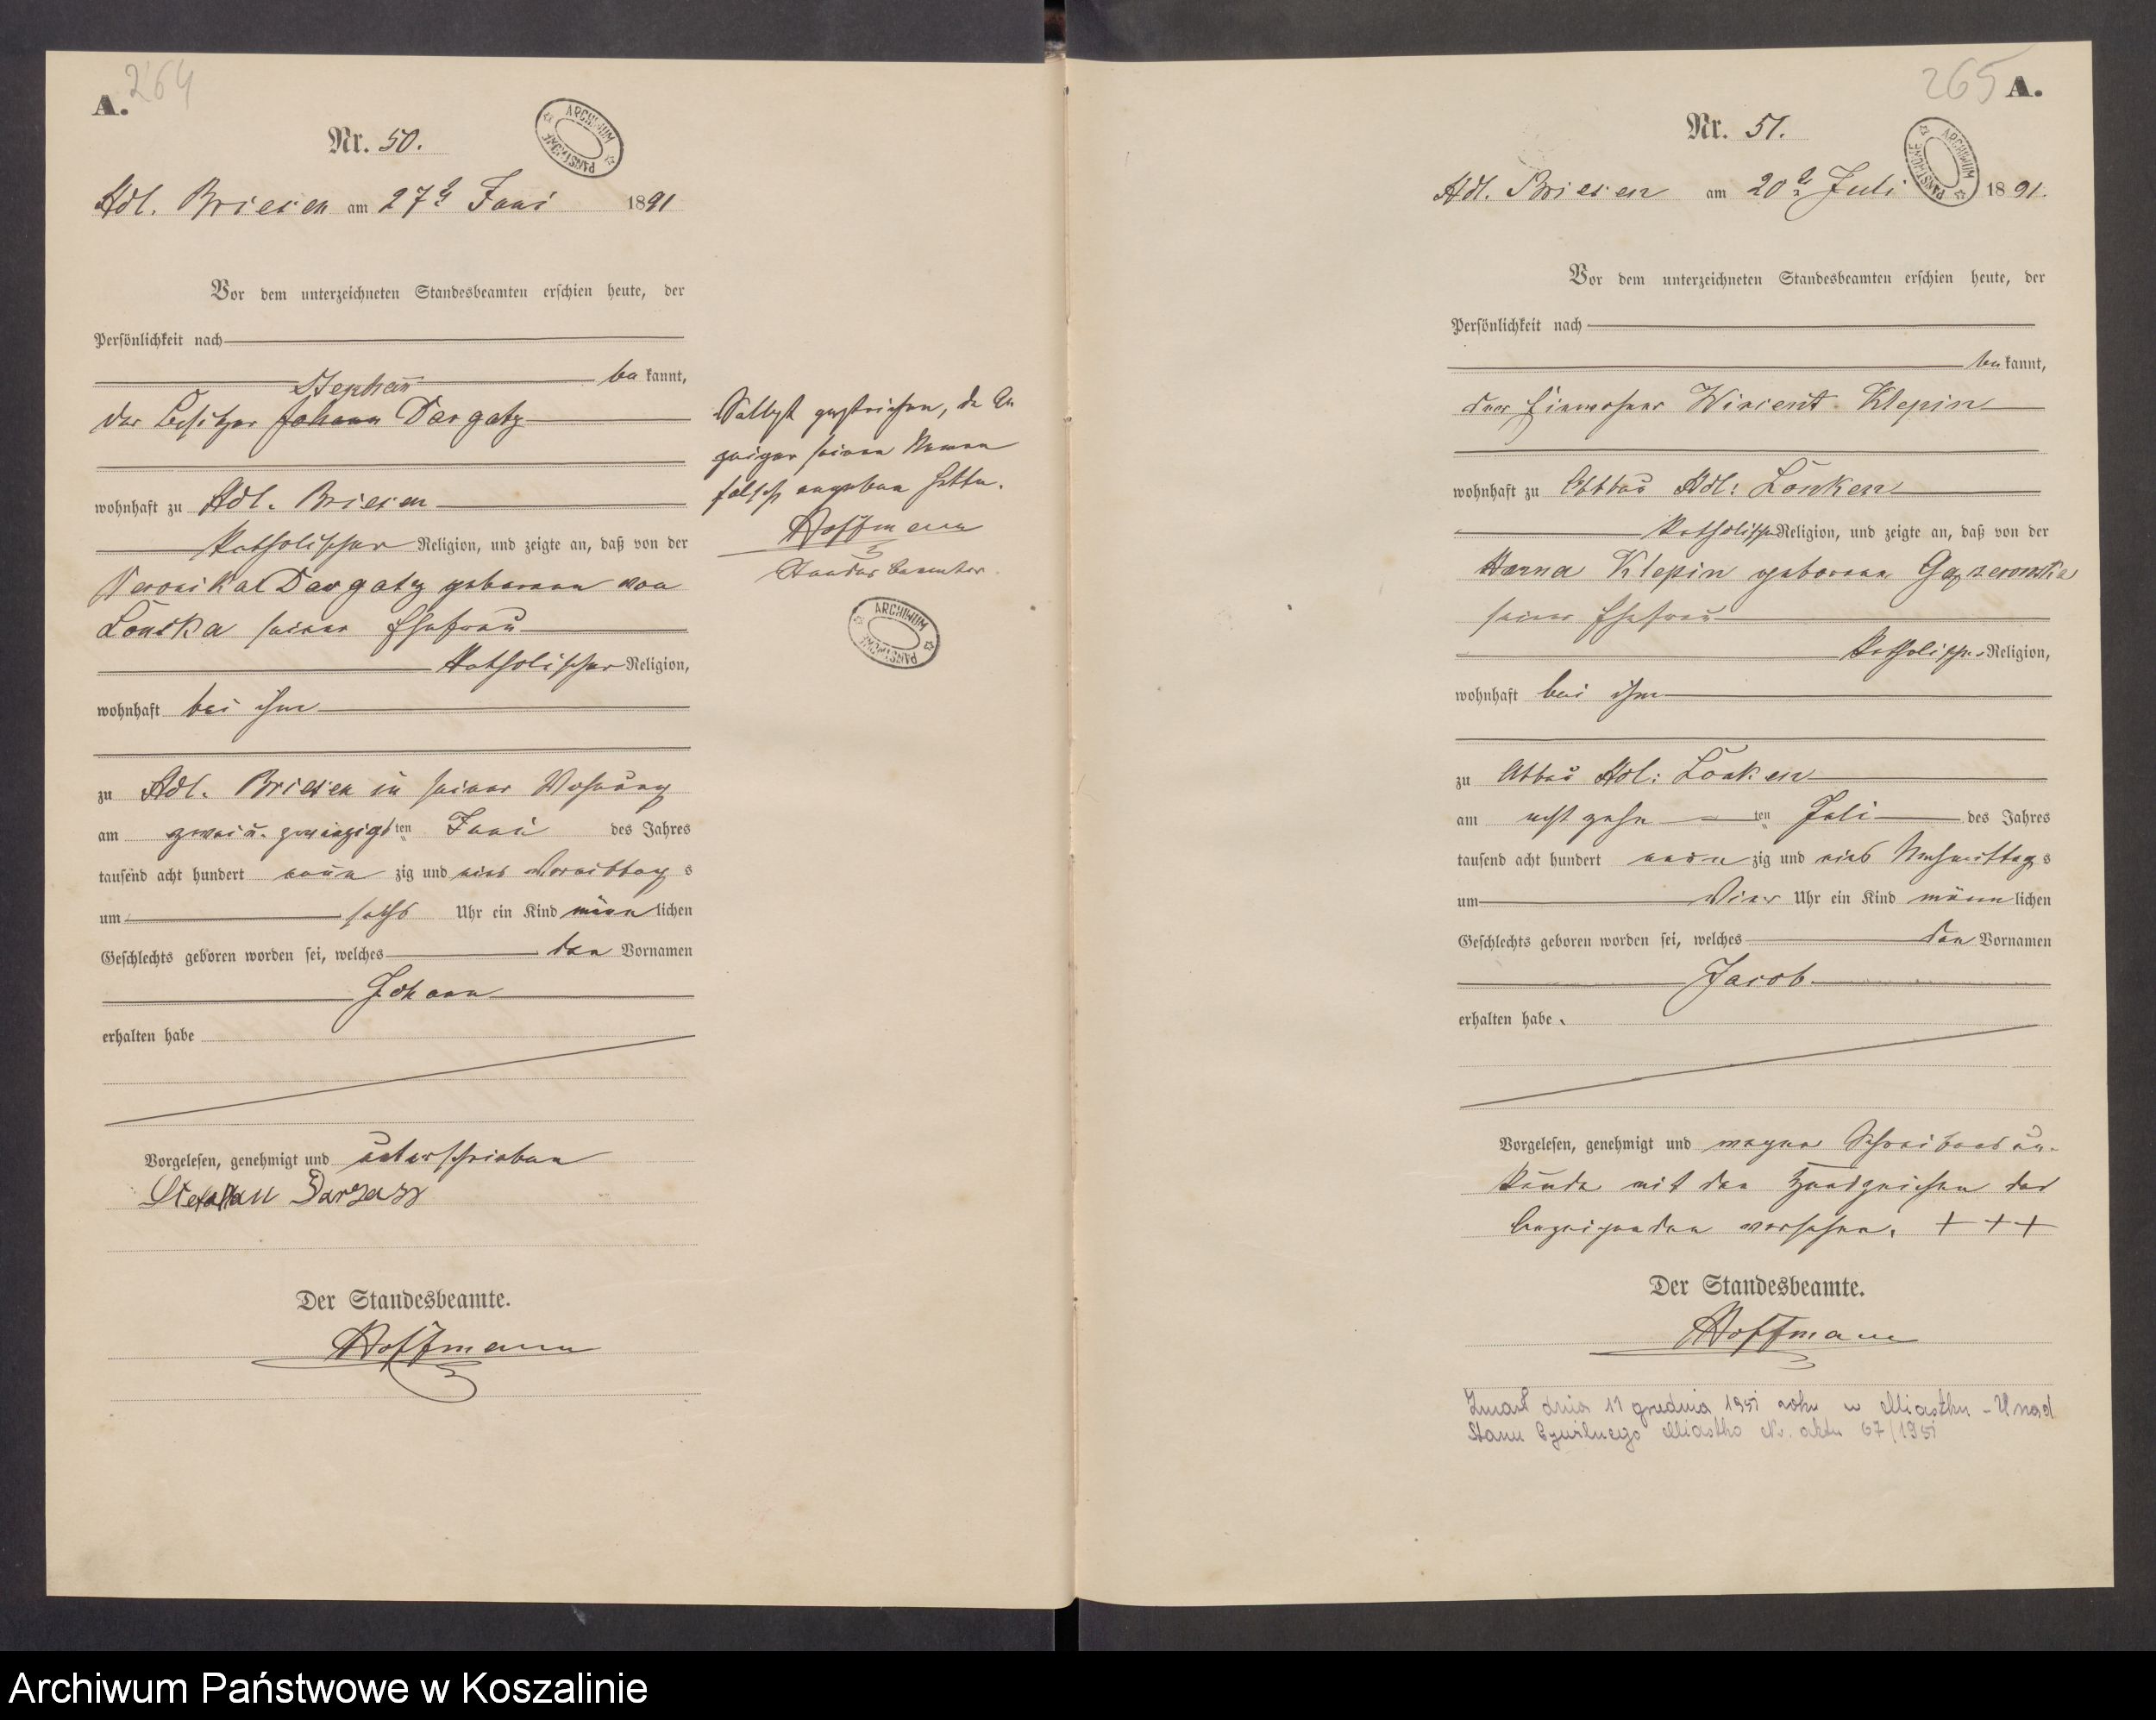 A.
264
Nr. 50.
ARCHIWUM PAŃSTWOWE
Adl. Briesen am 27t Juni 1891
Vor dem unterzeichneten Standesbeamten erschien heute, der
Persönlichkeit nach
be kannt,
Stephan
der Besitzer Johann Dargatz
wohnhaft zu Adl. Briesen
katholischer Religion, und zeigte an, daß von der
Veronika Dargatz geborene von
Lonska seiner Ehefrau
katholischer Religion,
wohnhaft bei ihm
zu Adl. Briesen in seiner Wohnung
am zwei u. zwanzigsten Juni des Jahres
tausend acht hundert neun zig und eins Vormittags
um sechs Uhr ein Kind männlichen
Geschlechts geboren worden sei, welches den Vornamen
Johann
erhalten habe
Vorgelesen, genehmigt und unterschrieben
Stephan Dargatz
Der Standesbeamte.
Hoffmann
gestrichen, da An
zeiger seinen Namen
falsch angeben hatte.
Hoffmann
Standesbeamter.
ARCHIWUM PAŃSTWOWE
265 A.
Nr. 51.
ARCHIWUM PAŃSTWOWE
Adl. Briesen am 20t Juli 1891.
Vor dem unterzeichneten Standesbeamten erschien heute, der
Persönlichkeit nach
be kannt,
der Einwohner Wincent Klepin
wohnhaft zu Abbau Adl: Lonken
katholischer Religion, und zeigte an, daß von der
Klepin geborene
seiner Ehefrau
katholischer Religion,
wohnhaft bei ihm
zu Abbau Adl: Lonken
am achtzehn ten Juli des Jahres
tausend acht hundert neun zig und eins Nachmittags
um Vier Uhr ein Kind männlichen
Geschlechts geboren worden sei, welches den Vornamen
Jacob
erhalten habe.
Vorgelesen, genehmigt und wegen Schreibensun-
kunde mit den Handzeichen des
Anzeigenden versehen. + + +
Der Standesbeamte.
Hoffmann
Zmarł dnia 11 grudnia 1951 roku w Miastku - Urząd
Stanu Cywilnego Miastko Nr. aktu 67/1951
Archiwum Państwowe w Koszalinie